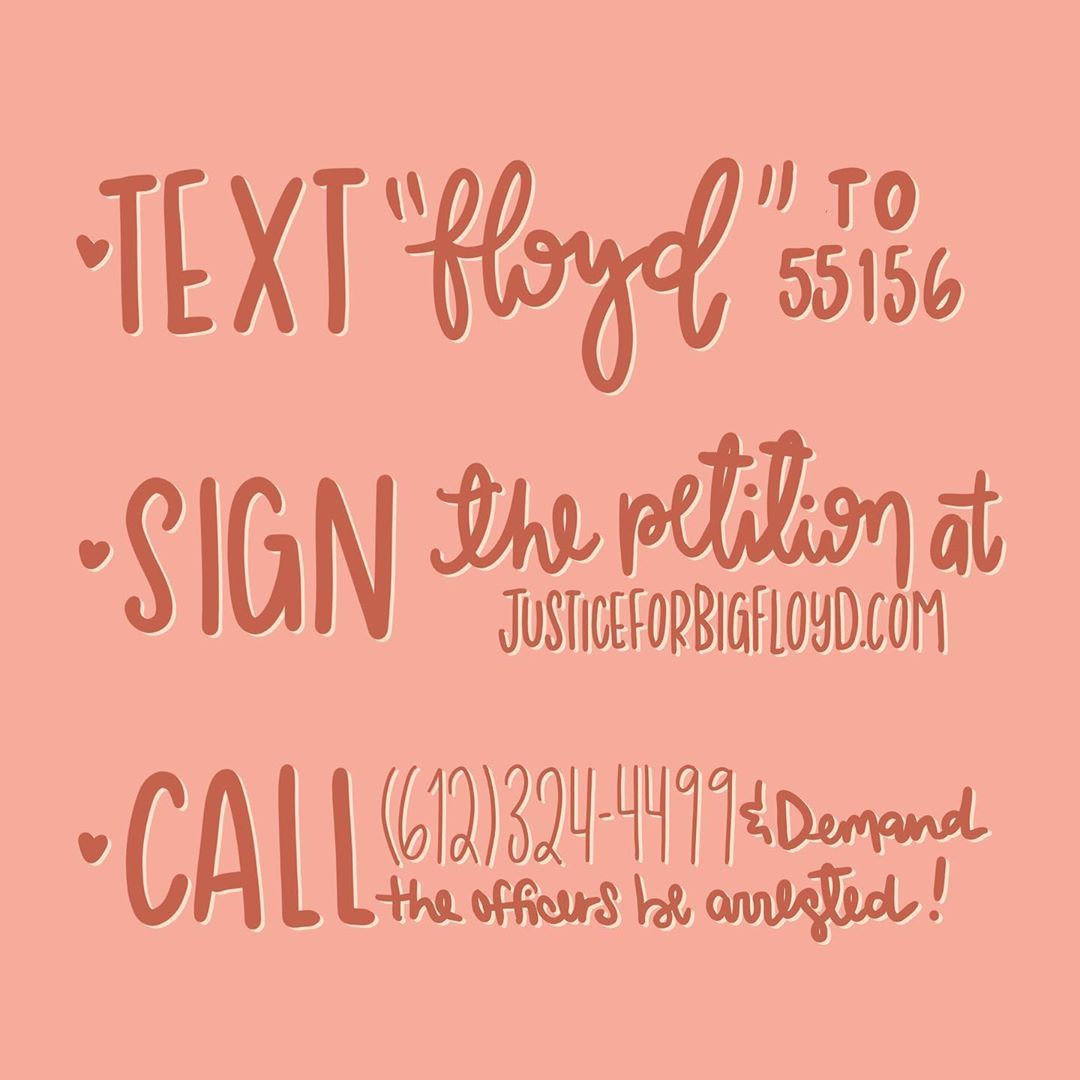 TEXT "floyd" TO
55156
SIGN the petition at
JUSTICEFORBIGFLOYD.COM
CALL (612)324-4499 & Demand
the officers be arrested!